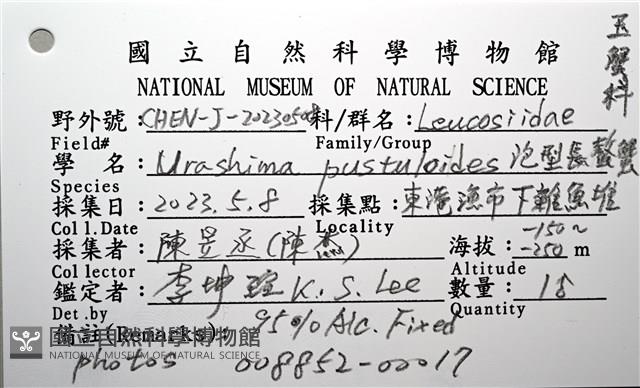 玉蟹科
國立自然科學博物館
NATIONAL MUSEUM OF NATURAL SCIENCE
野外號:CHEN-J-20230508 科/群名:Leucosiidae
Field# Family/Group
學 名:Urashima pustuloides 泡型長螯蟹
Species
採集日:2023.5.8 採集點:東港漁市下雜魚堆
Coll.Date Locality
採集者:陳昱丞(陳杰) 海拔:-150~-250 m
Collector Altitude
鑑定者:李坤瑄 K.S. Lee 數量:1♂
Det.by Quantity
備註(Remarks): 95% Alc. Fixed
photos 008852-00017
國立自然科學博物館
NATIONAL MUSEUM OF NATURAL SCIENCE